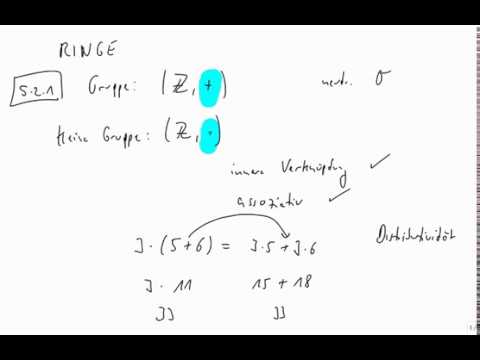 RINGE
5.2.1 Gruppe: (ℤ, +) neutr. 0
Keine Gruppe: (ℤ, ·)
innere Verknüpfung ✓
assoziativ ✓
3·(5+6) = 3·5+3·6 Distributivität
3·11 15+18
33 33